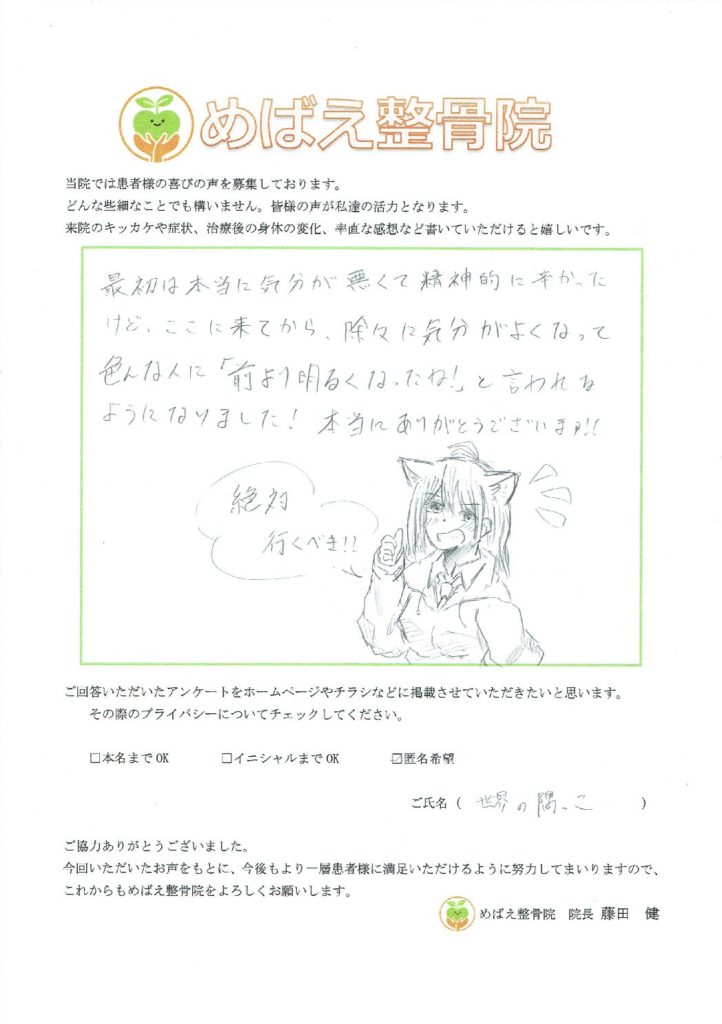 めばえ整骨院
当院では患者様の喜びの声を募集しております。
どんな些細なことでも構いません。皆様の声が私達の活力となります。
来院のキッカケや症状、治療後の身体の変化、率直な感想など書いていただけると嬉しいです。
最初は本当に気分が悪くて精神的に辛かった
けど、ここに来てから、除々に気分がよくなって
色んな人に「前より明るくなったね!」と言われる
ようになりました! 本当にありがとうございます!!
絶対
行くべき!!
ご回答いただいたアンケートをホームページやチラシなどに掲載させていただきたいと思います。
その際のプライバシーについてチェックしてください。
□本名までOK □イニシャルまでOK ☑匿名希望
ご氏名( 世界の隅っこ )
ご協力ありがとうございました。
今回いただいたお声をもとに、今後もより一層患者様に満足いただけるように努力してまいりますので、
これからもめばえ整骨院をよろしくお願いします。
めばえ整骨院 院長 藤田 健